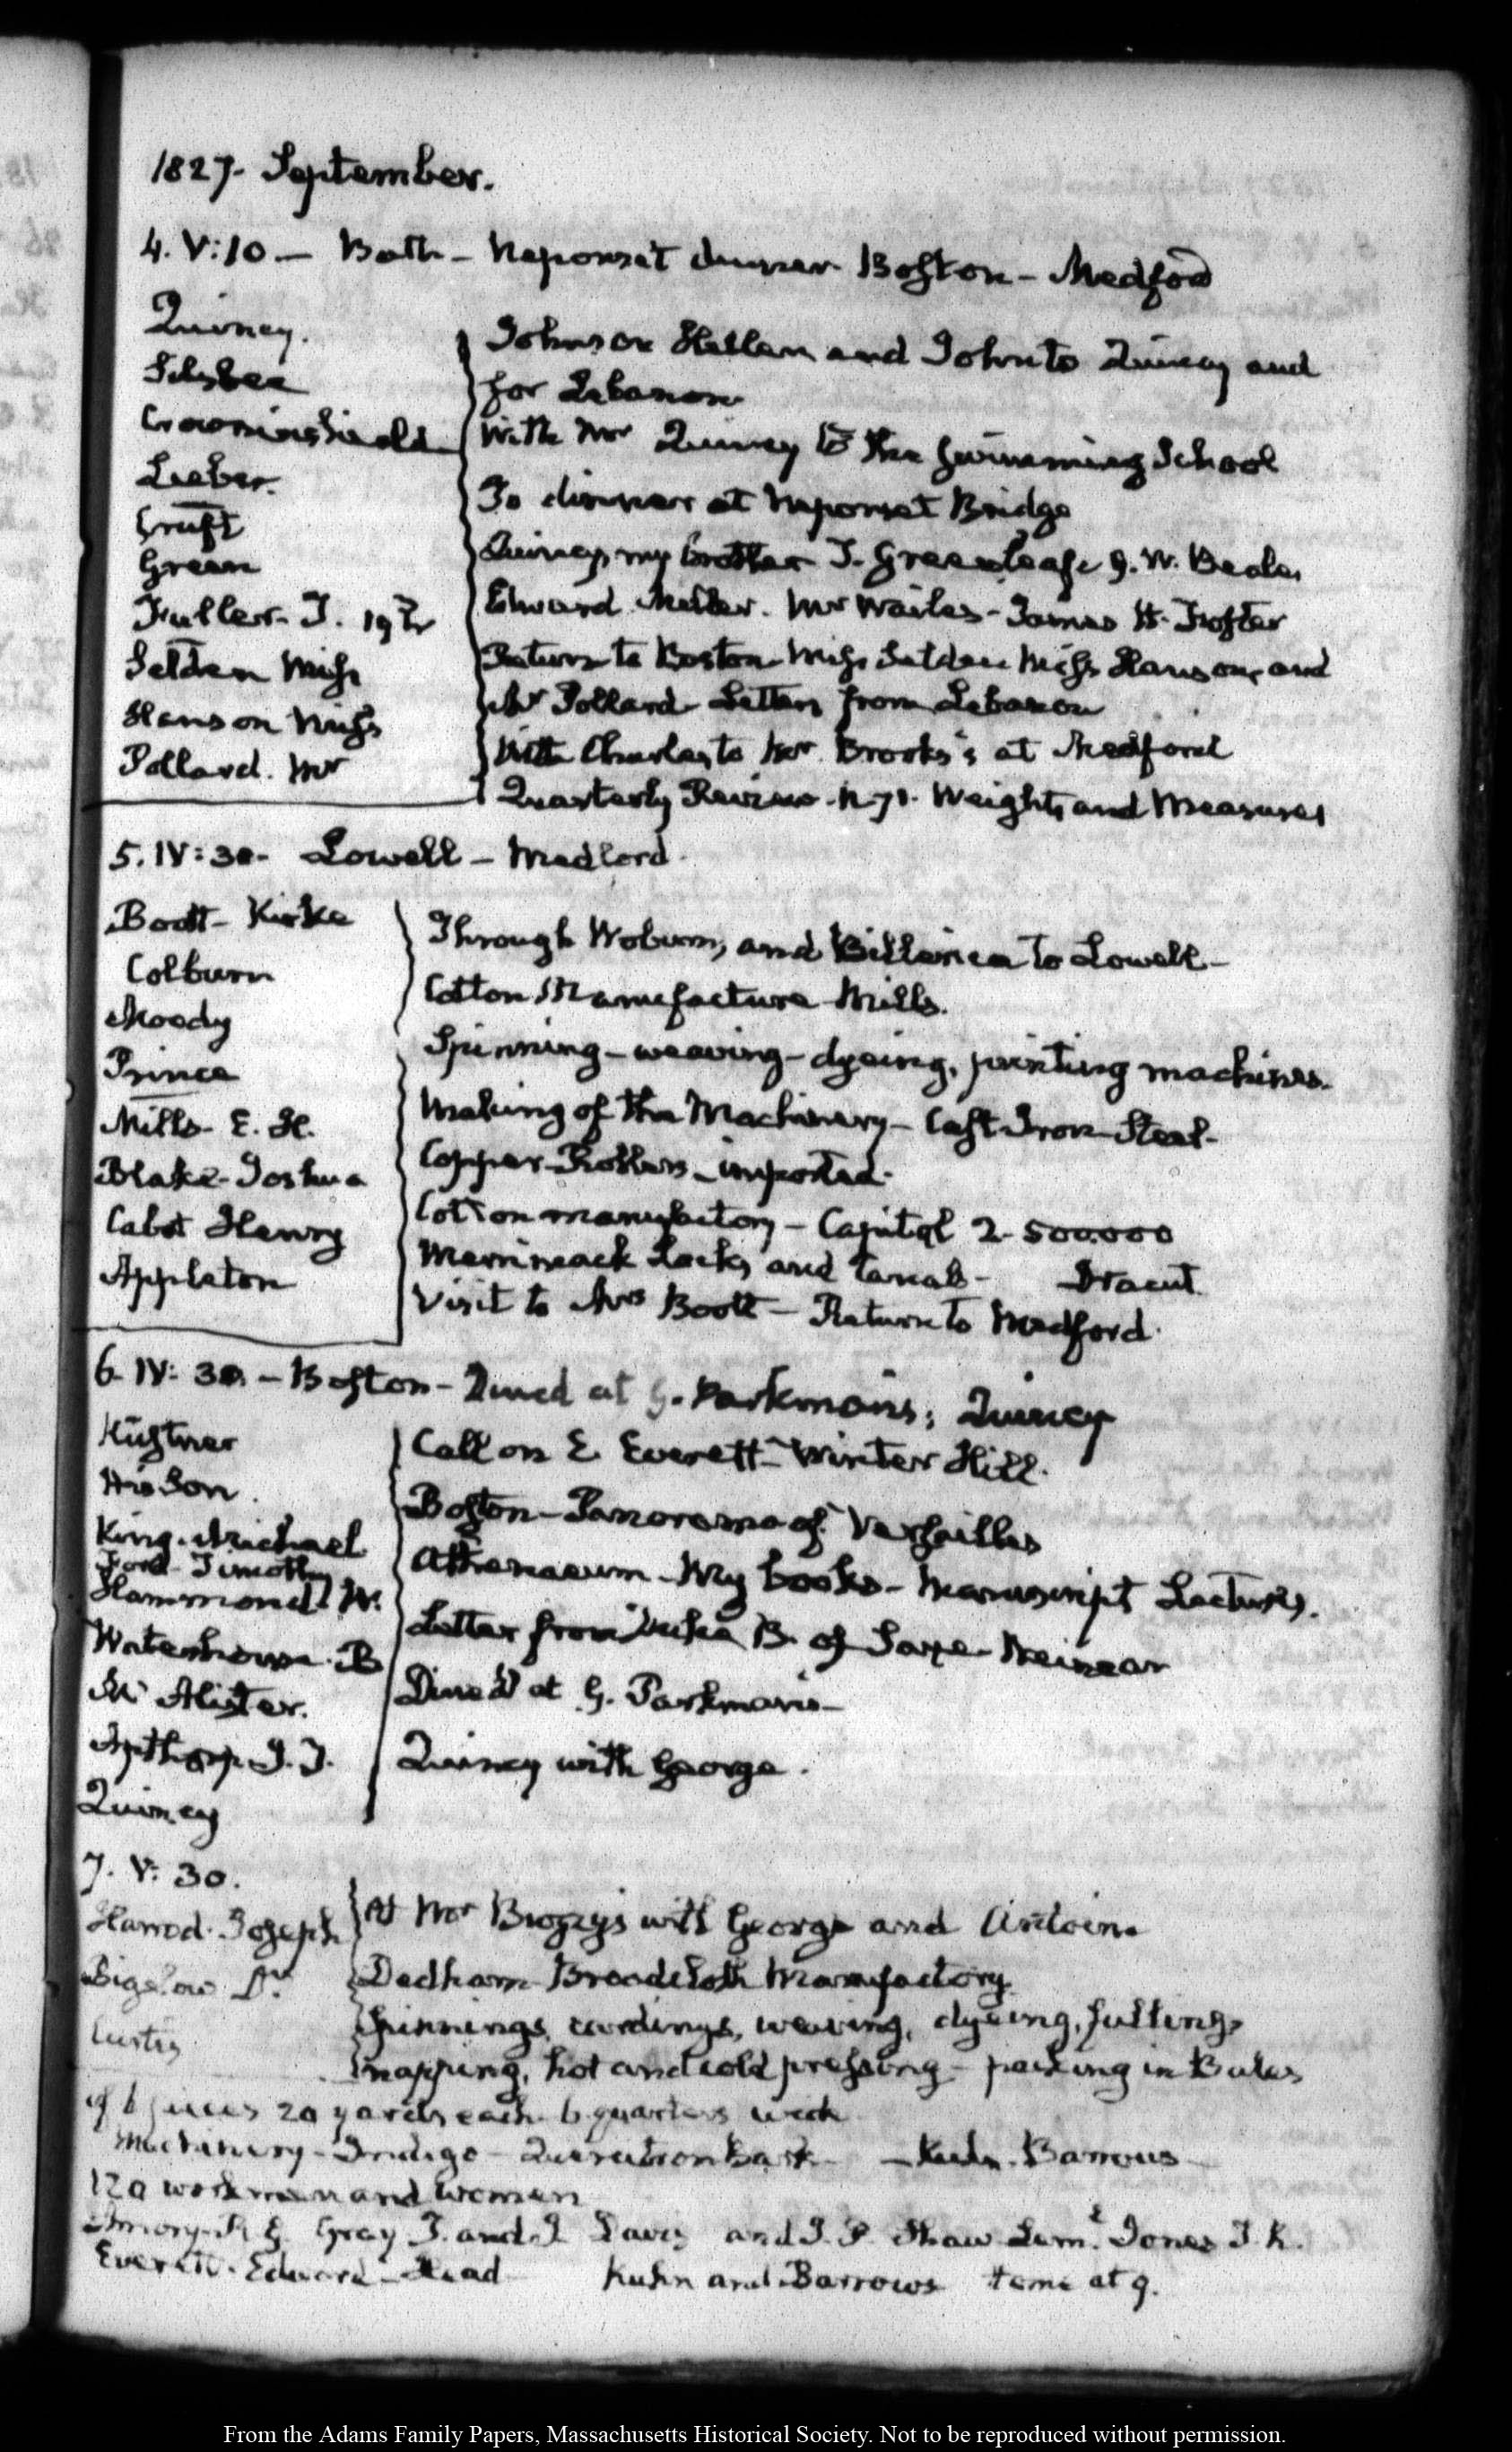 1827. September.
4. V:10 — Bath — Neponset dinner Boston — Medford
Quincy.
Silsbee
Crowninshield
Lieber.
Cruft
Green
Fuller. T.
Selden Miss
Hanson Miss
Pollard. Mr
Johnson Hellen and John to Quincy and
for Lebanon
With Mr Quincy to the swimming School
To dinner at Neponset Bridge
Quincy, my brother J. Greenleaf, G. W. Beale,
Edward Miller. Mr Wailes — James H. Foster
Return to Boston Miss Selden Miss Hanson, and
Mr Pollard — Letters from Lebanon
With Charles to Mr Brooks's at Medford
Quarterly Review. N. 71. Weights and Measures
5. IV:30. Lowell — Medford.
Boott — Kirke
Colburn
Moody
Prince
Mills — E. H.
Blake — Joshua
Cabot Henry
Appleton
Through Woburn, and Billerica to Lowell —
Cotton Manufacture Mills.
Spinning — weaving — dyeing, printing machines.
Making of the Machinery — Cast Iron — Steel —
Copper — Rollers — imported.
Cotton manufactory — Capital 2. 500.000
Merrimack Locks and Canals — Dracut
Visit to Mrs Boott — Return to Medford.
6. IV: 30. — Boston — Dined at G. Parkman's; Quincy
Küstner
His Son.
King. Michael
Ford — Timothy
Hammond W.
Waterhouse. B
Mc Alister.
Apthorp. J. T.
Quincy
Call on E. Everett — Winter Hill.
Boston — Panorama of Versailles
Athenaeum — My books — Manuscript Lectures.
Letter from Duke B. of Saxe-Weimar
Dined at G. Parkman's —
Quincy with George.
7. V: 30.
Harrod. Joseph
Bigelow Dr.
Curtis
At Mr Brigg's with George and Antoine
Dedham — Broadcloth Manufactory
Spinnings, cardings, weaving, dyeing, fulling,
napping, hot and cold pressing — packing in Bales
of 6 pieces 20 yards each. 6 quarters wide
Machinery — Indigo — Quercitron bark — Kuhn. Barrows —
120 workmen and women
Amory. R. G. Gray F. and J. Davis and J. P. Shaw Leml. Jones T. K.
Everett. Edward — Head Kuhn and Barrows Home at 9.
From the Adams Family Papers, Massachusetts Historical Society. Not to be reproduced without permission.